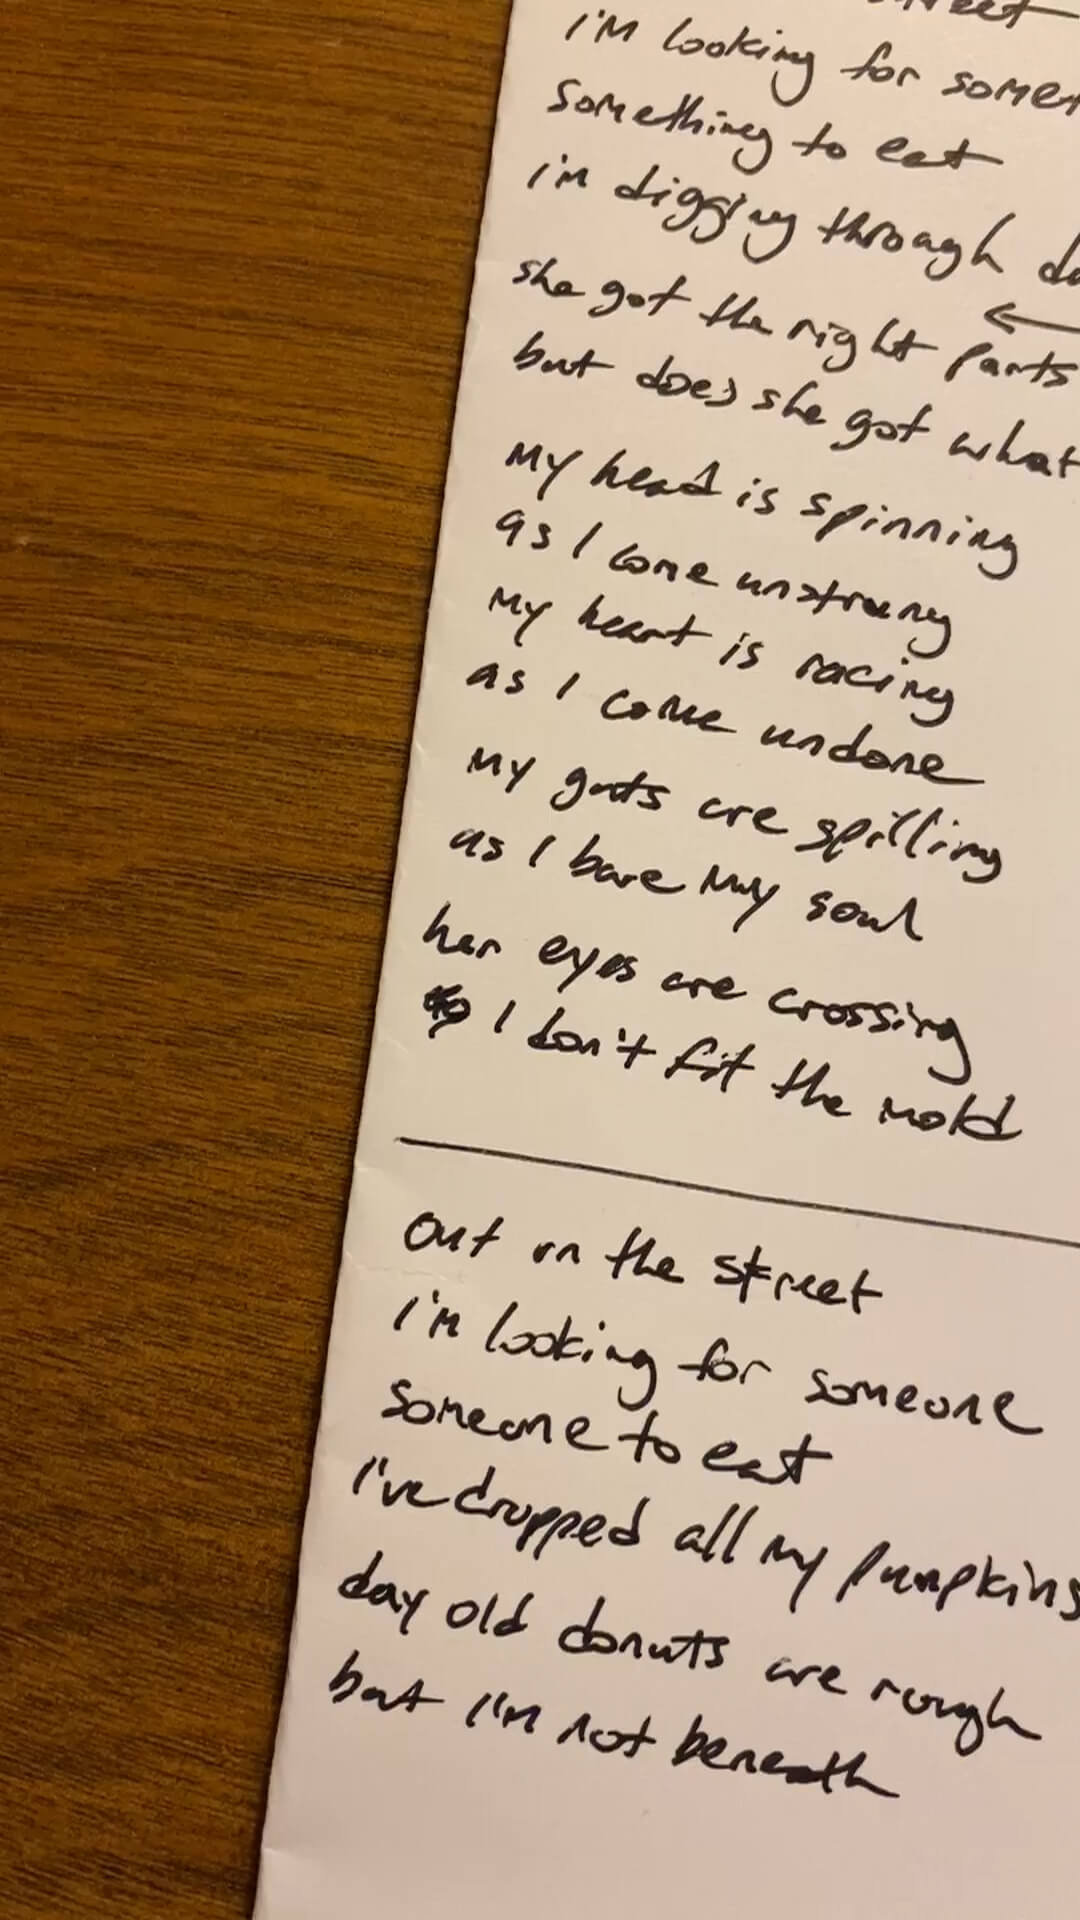 street
I'm looking for
something to eat
i'm digging through
she got the right parts
but does she got what
My head is spinning
as I come unstrung
My heart is racing
as I come undone
My guts are spilling
as I bare my soul
her eyes are crossing
I don't fit the mold
Out on the street
I'm looking for someone
Someone to eat
I've dropped all my pumpkins
day old donuts are rough
but I'm not beneath